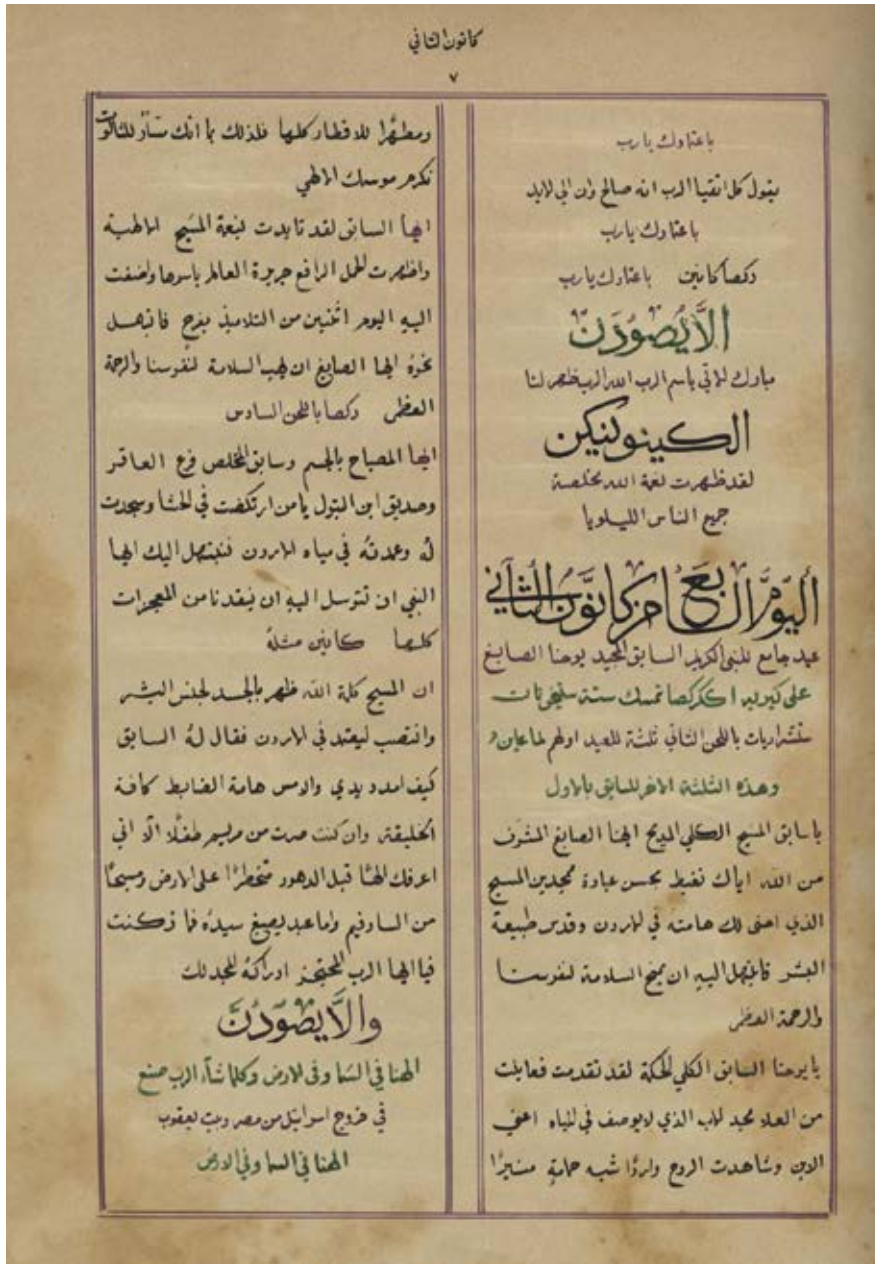 كانون الثاني
٧
باعتمادك يارب
يقول كل اتقيا الرب انه صالح وان الى الابد
باعتمادك يارب
ذكصا كانين باعتمادك يارب
الايصودن
مبارك الاتي باسم الرب الله الرب ظهر لنا
الكينونيكن
لقد ظهرت نعمة الله مخلصة
جميع الناس الليلويا
اليوم السابع من كانون الثاني
عيد جامع للنبي الكريم السابق المجيد يوحنا الصابغ
على كيريه اككركصا تمسك ستة ستيخرنات
باللحن الثاني ثلثة للعيد اولهم لما عاين
وهذه الثلثة الاخر للسابق بالاول
ياسابق المسيح الكلي المديح ايها الصابغ المشرف
من الله اياك نغبط بحسن عبادة ممجدين المسيح
الذي احنى لك هامته في الاردن وقدس طبيعة
البشر فابتهل اليه ان يمنح السلامة لنفوسنا
والرحمة العظمى
يا يوحنا السابق الكلي الحكمة لقد تقدمت فعاينت
من العلا مجد الاب الذي لايوصف في المياه اعني
الابن وشاهدت الروح واردًا شبه حمامةٍ منيرًا
ومطهرًا للاقطار كلها فلذلك بما انك للثالوث
نكرم موسمك الالهي
ايها السابق لقد تايدت بنعمة المسيح الالهية
واظهرت الحمل الرافع جريرة العالم باسرها واضفت
اليه اليوم اثنين من التلاميذ بفرحٍ فابتهل
نحوهُ ايها الصابغ ان يهب السلامة لنفوسنا والرحمة
العظمى ذكصا باللحن السادس
ايها المصباح بالجسم وسابق المخلص فرع العاقر
وصديق ابن البتول يامن ارتكضت في الحشا وسجدت
له وعمدته في مياه الاردن فنبتهل اليك ايها
النبي ان تتوسل اليه ان ينقذنا من
كلها كانين مثله
ان المسيح كلمة الله ظهر بالجسد لجنس البشر
وانتصب ليعتمد في الاردن فقال لهُ السابق
كيف امدد يدي والامس هامة الضابط كافة
الخليقة وان كنت صرت من مريم طفلًا الّا اني
اعرفك الهًا قبل الدهور متخطرًا على الارض ومسبحًا
من السارفيم واما عبد يصبغ سيدهُ فما ذكنت
فيا ايها الرب ادراكهُ المجد لك
والايصودن
الهنا في السما وفي الارض وكلما شاء الرب صنع
في خروج اسرايل من مصر وبيت يعقوب
الهنا في السما وفي الارض